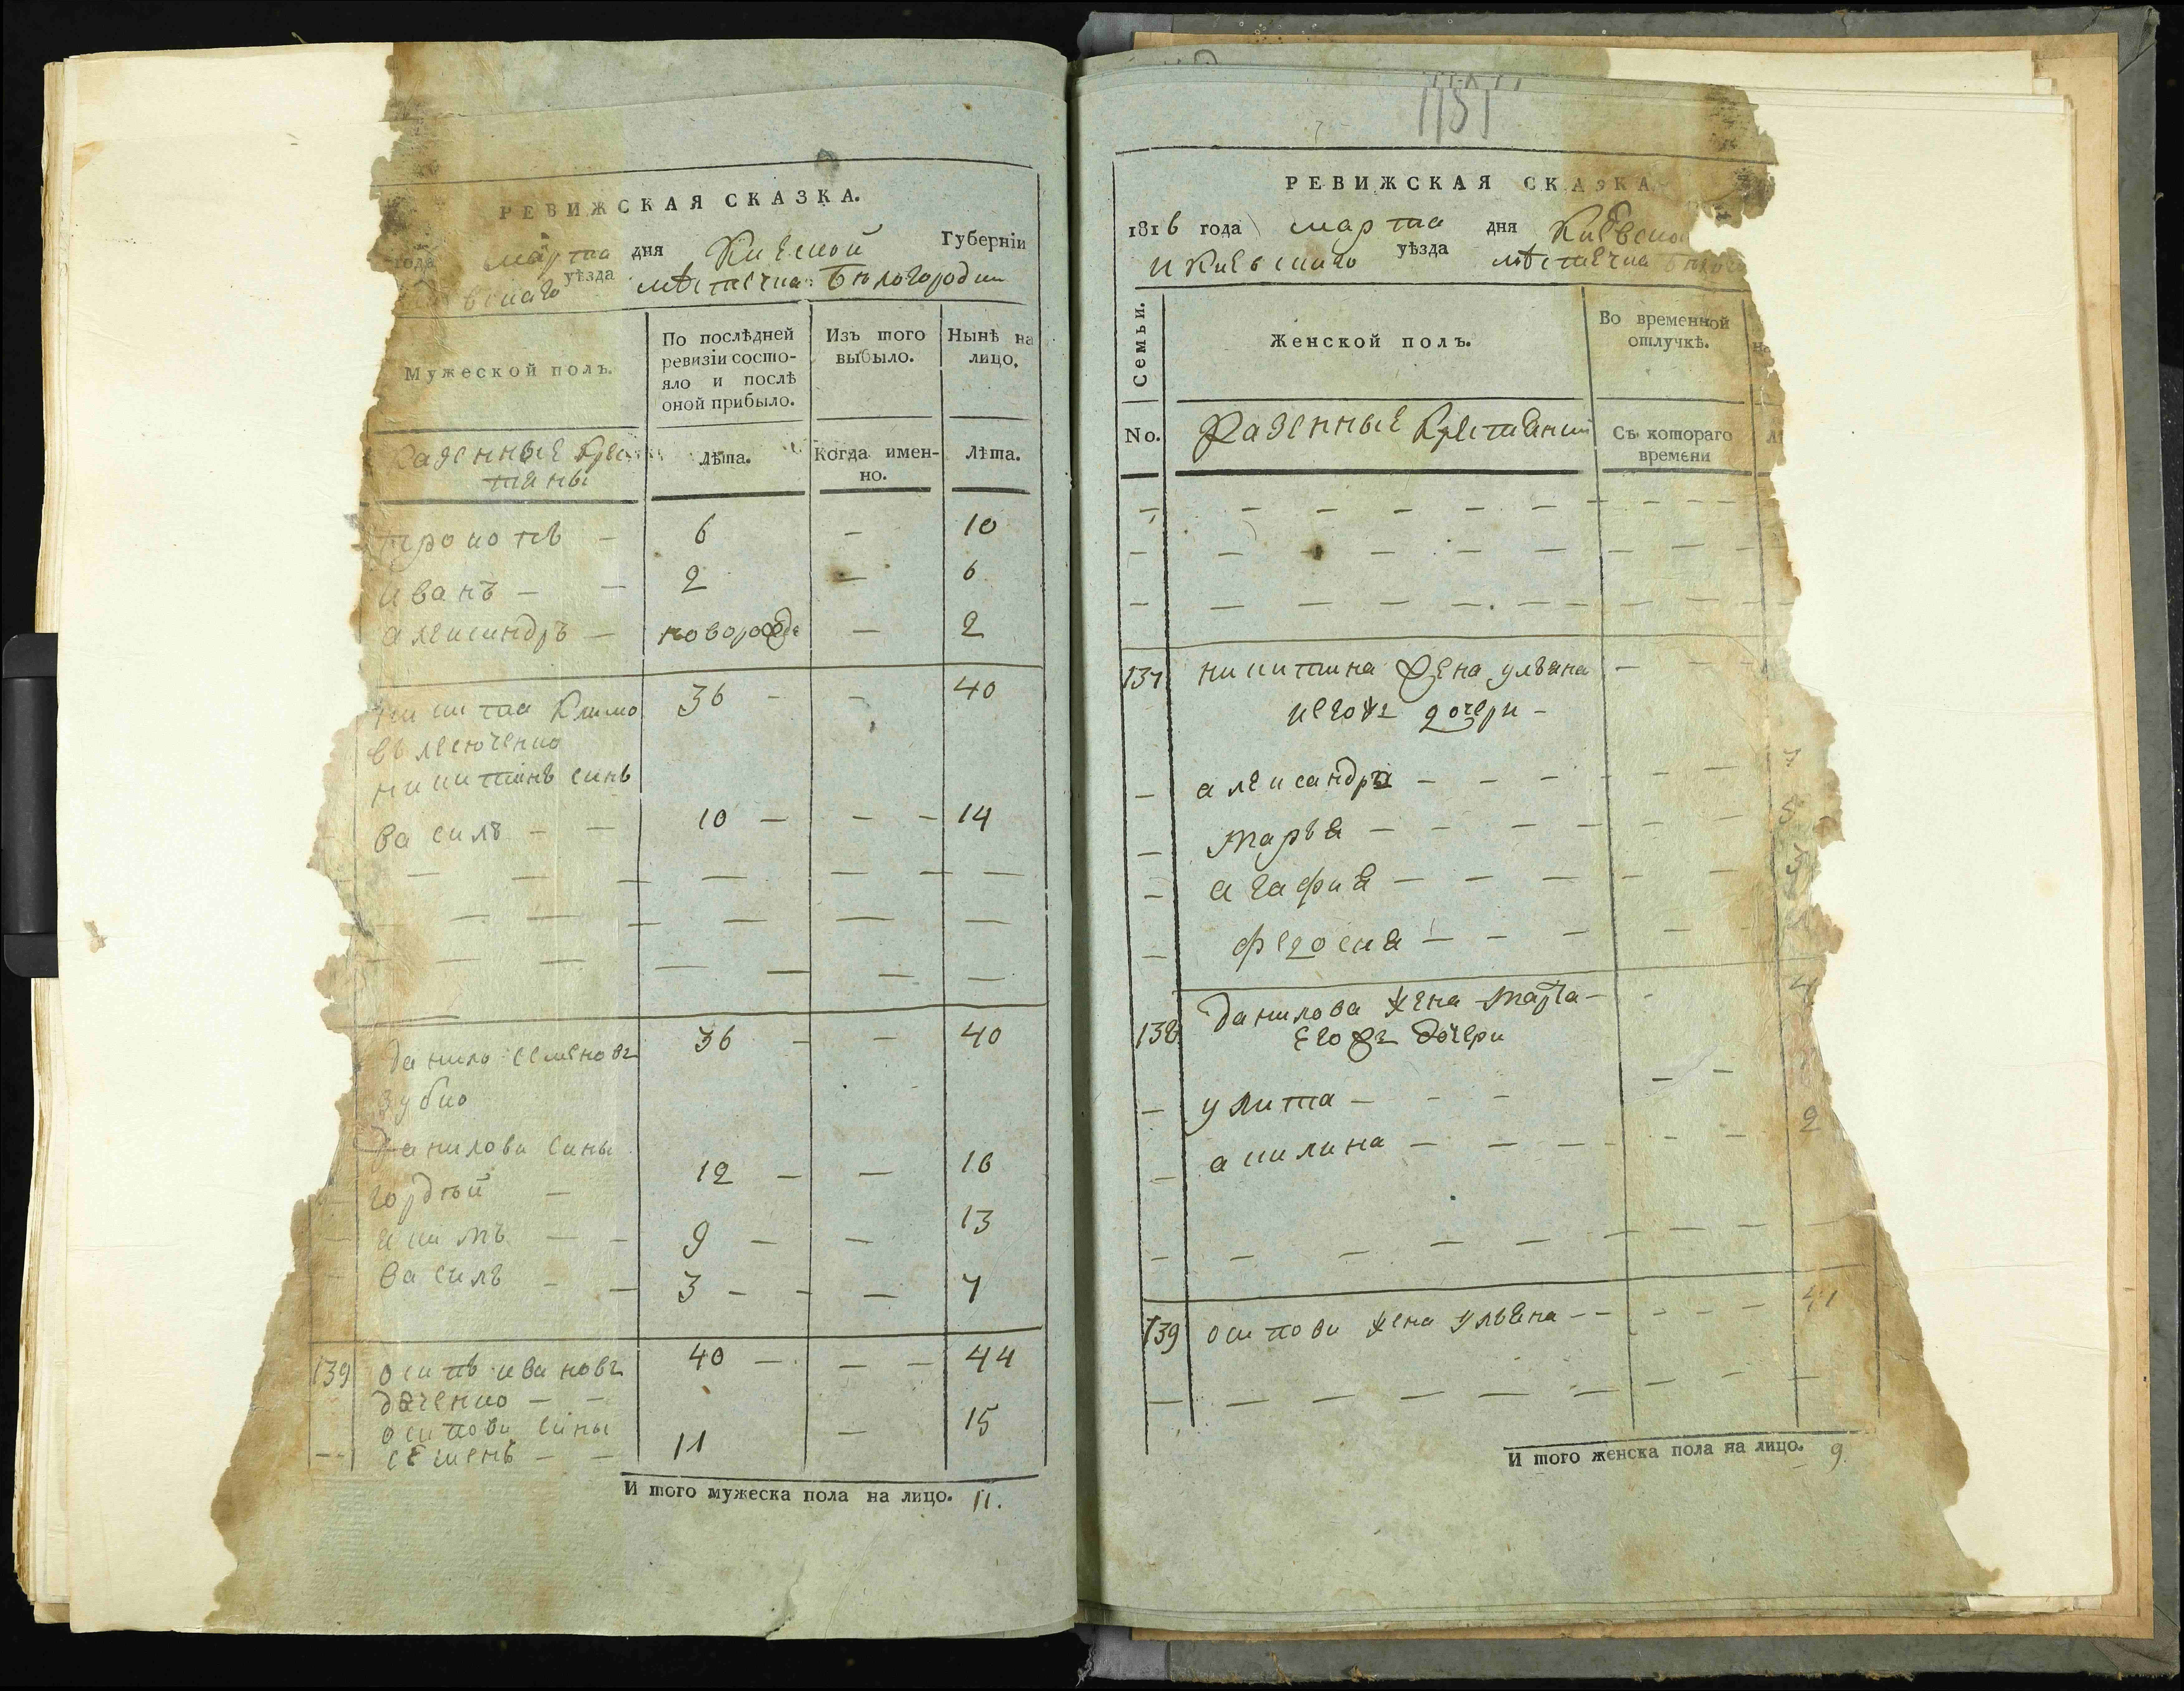 РЕВИЖСКАЯ СКАЗКА.
года марта дня Киевской Губерніи
вскаго уѣзда мѣстечка Бѣлогородки
Мужеской полъ.
По послѣдней ревизіи состояло и послѣ оной прибыло.
Изъ того выбыло.
Нынѣ на лицо.
Казенные Крес
тяны
Лѣта.
Когда именно.
Лѣта.
прокопъ — 6 — 10
иванъ — — 2 — 6
александръ — новорожде — 2
никита Климо 36 — — 40
въ
никитинъ синъ
василь — — 10 — — — 14
данило семеновъ 36 — — 40
зубко
данилови сины
гордѣй — 12 — — 16
якимъ — — 9 — — 13
василь — — 3 — — — 7
139 осипъ ивановъ 40 — — — 44
дяченко — —
осипови сины
— семенъ — — 11 — 15
И того мужеска пола на лицо. 11.
1151
РЕВИЖСКАЯ СКАЗКА.
1816 года марта дня Киевско
и Киевскаго уѣзда мѣстечка Бѣлого
Семьи.
Женской полъ.
Во временной отлучкѣ.
No.
Казенные Крестянки
Съ котораго времени
137 никитина жена уляна — — —
и егожъ дочери —
— александра — — — — — — 7
— марья — — — — — — 5
— агафия — — — — — — 3
— федосия — — — — —
138 данилова жена марта —
егожъ дочери
— улита — — — — —
— акилина — — — — — — 2
139 осипови жена уляна — — — — — — 41
И того женска пола на лицо. 9.